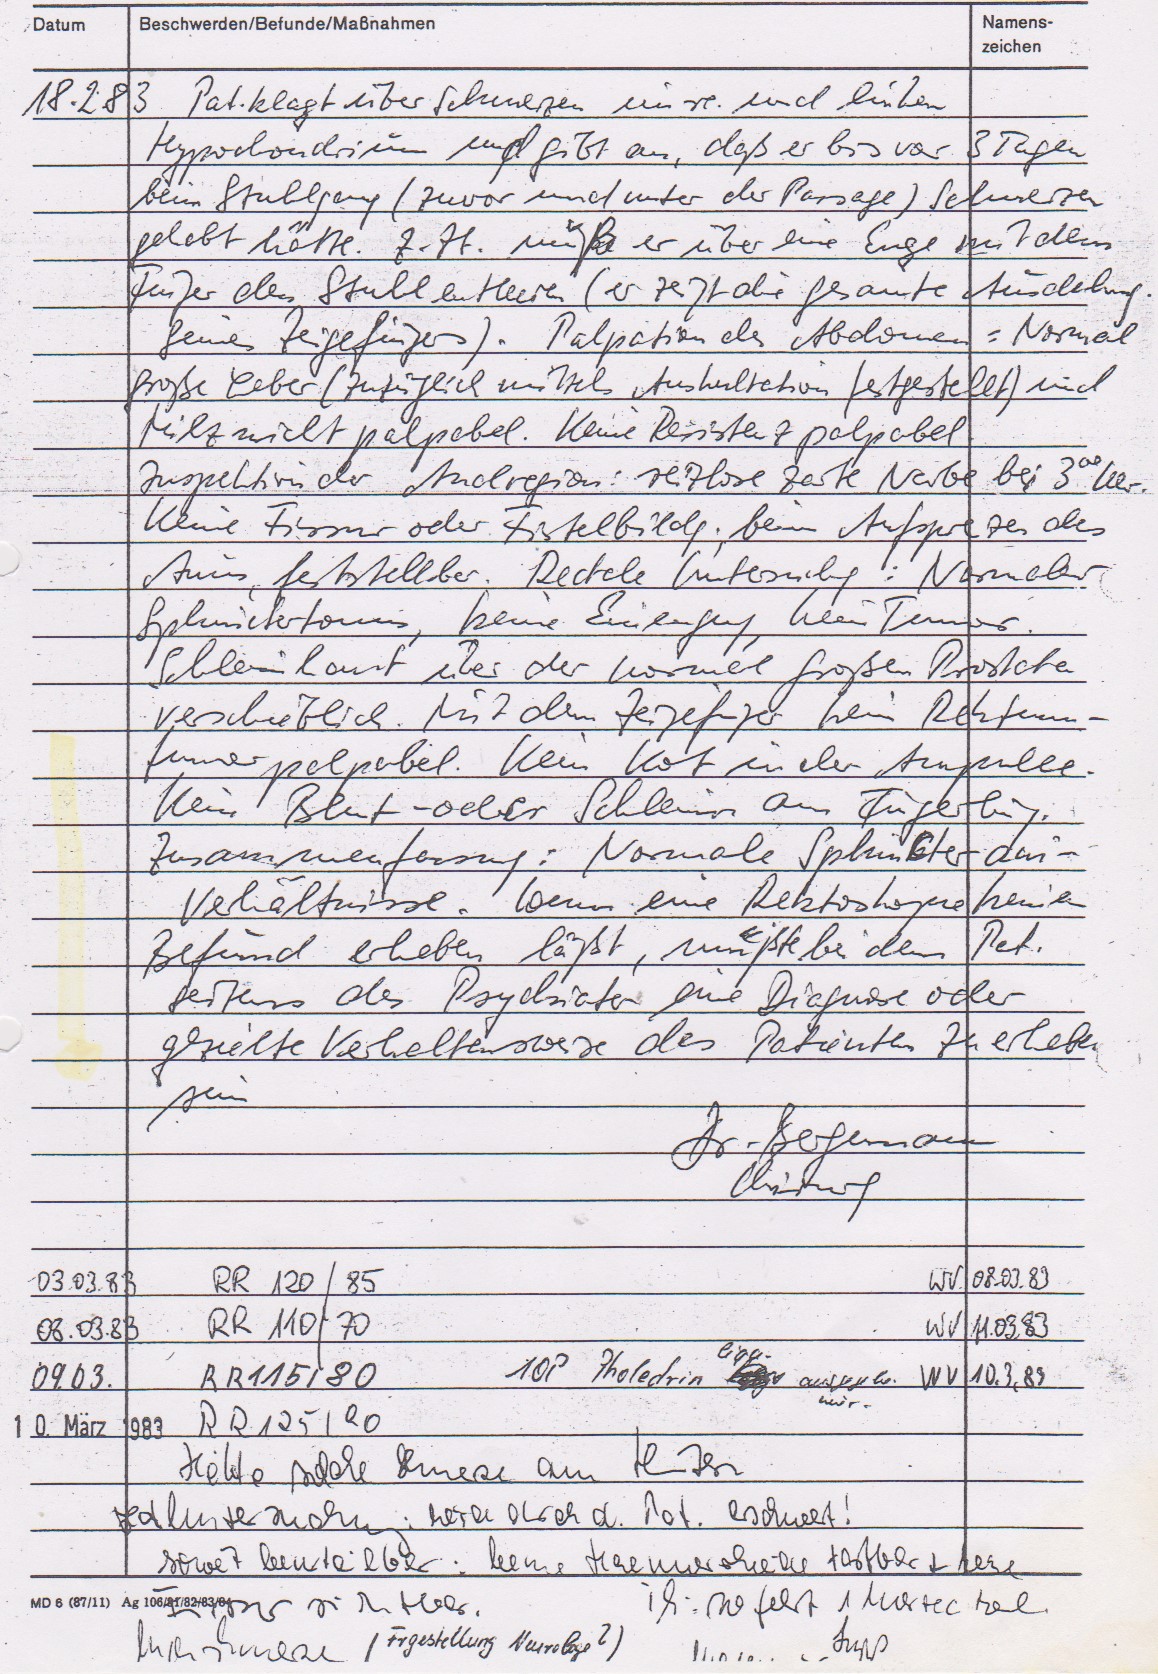 Datum Beschwerden/Befunde/Maßnahmen Namens-
zeichen
18.2.83 Pat. klagt über Schmerzen im re. und linken
Hypochondrium und gibt an, daß er bis vor 3 Tagen
beim Stuhlgang (zuvor und unter der Passage) Schmerzen
gehabt hätte. Z. Zt. müße er über eine Enge mit dem
Finger den Stuhl entleeren (er zeigt die gesamte Ausdehng.
seines Zeigefingers). Palpation des Abdomen = Normal
große Leber (zuzüglich mittels Auskultation festgestellt) und
Milz nicht palpabel. Keine Resistenz palpabel.
Inspektion der Analregion: reizlose zarte Narbe bei 3°° Uhr.
Keine Fissur oder Fistelbildg. beim Aufspreizen des
Anus, feststellbar. Rectale Untersuchg: Normaler
Sphinctertonus, keine Einengung, kein Tumor.
Schleimhaut über der normal großen Prostata
verschieblich. Mit dem Zeigefinger kein Rektum-
tumor palpabel. Kein Kot in der Ampulle.
Kein Blut- oder Schleim am Fingerling.
Zusammenfassung: Normale Sphinkter ani-
Verhältnisse. Wenn eine Rektoskopie keinen
Befund erheben läßt, müßte bei dem Pat.
seitens des Psychiater eine Diagnose oder
gezielte Verhaltensweise des Patienten zu erheben
sein
Dr. Bergemann
Chirurg
03.03.83 RR 120/85 WV. 08.03.83
08.03.83 RR 110/70 WV 11.03.83
09.03. RR 115/80 10P Pholedrin WV 10.3.83
10. März 1983 RR 125/90
am
durch d. Pat. erschwert!
soweit beurteilbar: keine Haemorrhoiden tastbar + keine
MD 6 (87/11) Ag 106/81/82/83/84
Fissur sichtbar.
(Frgestellung Neurologe?)